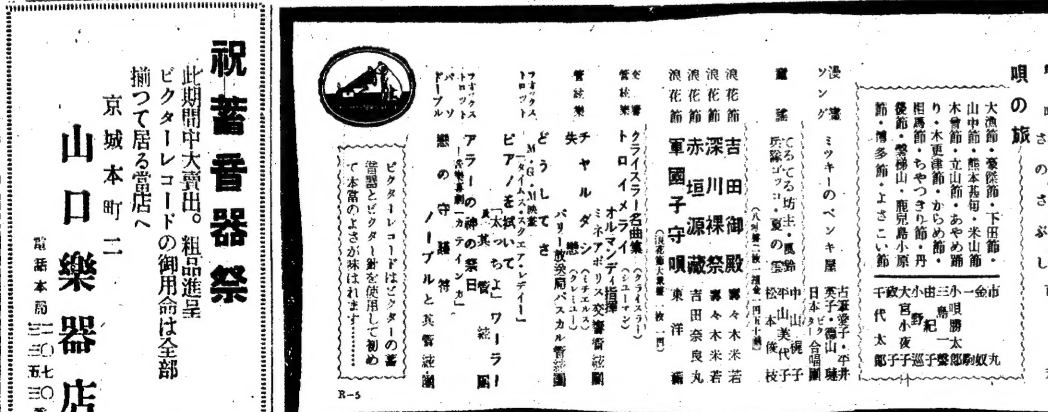 唄の旅
大漁節・豪傑節・下田節・
山中節・熊本甚句・米山節
木曾節・立山節・あやめ踊
り・木更津節・からめ節・
相馬節・ちやつきり節・丹
後節・磐梯山・鹿児島小原
節・博多節・よさこい節
市丸
金奴
一駒
小唄勝太郎
三島一聲
由紀子
小野巡
大宮小夜子
千代太郎
漫畫ソング
ミツキーのペンキ屋
古筆愛子・平井英子・徳山璉
日本ビクター合唱團
童謠
てるてる坊主・風鈴
兵隊ゴッコ・夏の雲
中山梶子
平山美代子
松本俊枝
浪花節
吉田御殿
壽々木米若
浪花節
深川裸祭
壽々木米若
浪花節
赤垣源藏
吉田奈良丸
浪花節
軍國子守唄
東洋
クライスラー名曲集
(クライスラー)
管絃樂
トロイメライ
(シューマン)
オルマンディ指揮
ミネアポリス交響管絃團
管絃樂
チヤルダシ
(ミチエルス)
失戀
(クレミユー)
パリー放送局パスカル管絃團
フオックストロット
どうしてさ
M・G・M映畫
「タイムス・スクエア・レデイー」
ピアノを拭いて
「太っちょ」ワーラー
及其管絃團
フオックストロット
アラーの神の祭日
音樂喜劇「カテインカ」
パソドーブル
戀の守護符
ノーブルと其管絃團
ビクターレコードはビクターの蓄
音器とビクター針を使用して初め
て本當のよさが味はれます
R-5
祝蓄音器祭
此期間中大賣出。粗品進呈
ビクターレコードの御用命は全部
揃つて居る當店へ
京城本町二
山口樂器店
電話本局